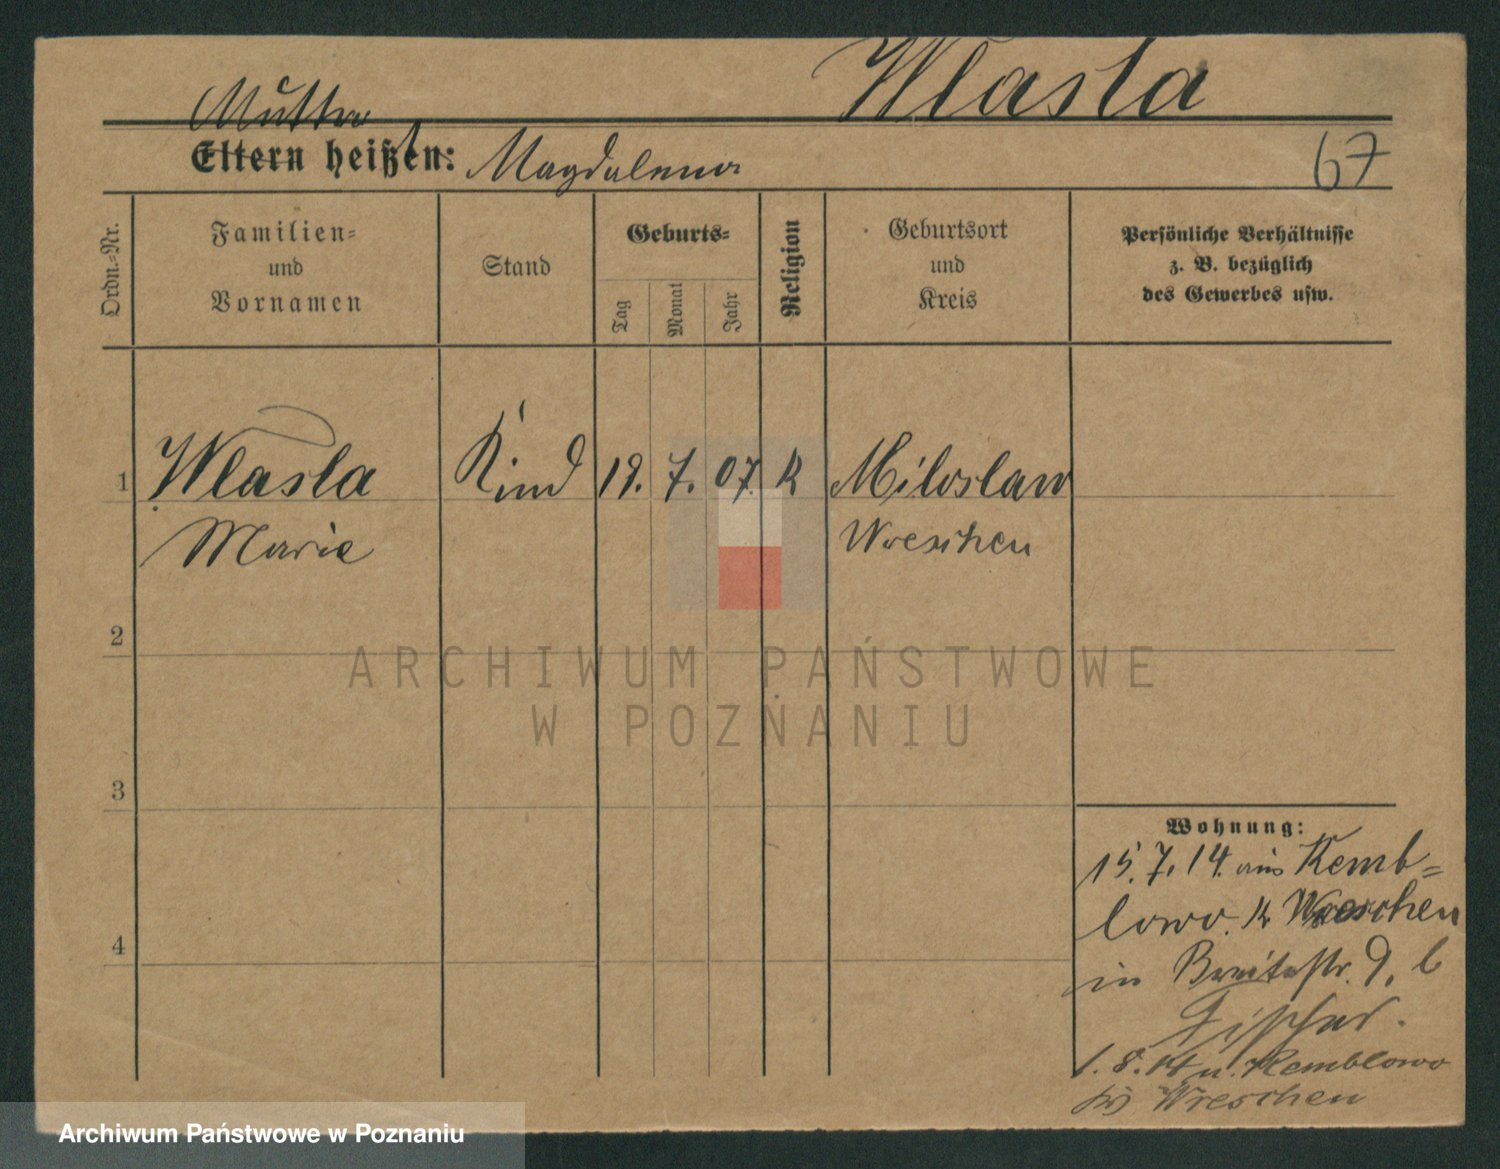 Wlasta
Mutter
Eltern heißen: Magdalena
67
Ordn.-Nr.
Familien-
und
Vornamen
Stand
Geburts-
Tag
Monat
Jahr
Religion
Geburtsort
und
Kreis
Persönliche Verhältnisse
z. B. bezüglich
des Gewerbes usw.
1 Wlasta Kind 19. 7. 07. K Miloslaw
Marie Wreschen
2
ARCHIWUM PAŃSTWOWE
W POZNANIU
3
Wohnung:
15.7.14. aus Kemb=
lowo. K Wreschen
4
in Breitestr. 9. b
Fischer.
1.8.14 n. Kemblowo
Wreschen
Archiwum Państwowe w Poznaniu